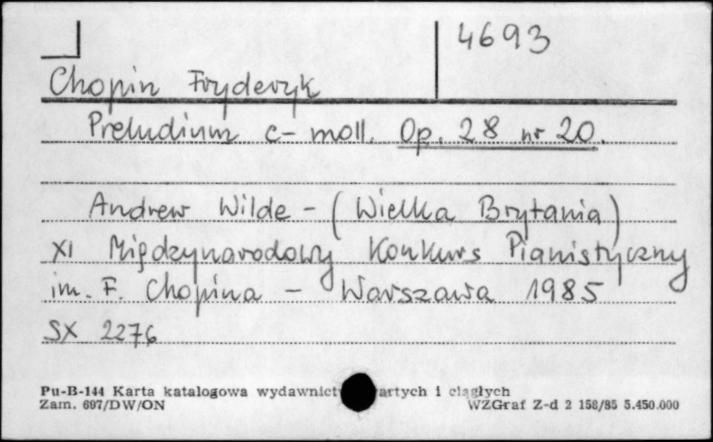 4693
Chopin Fryderyk
Preludium c-moll, Op. 28 nr 20.
Andrew Wilde - (Wielka Brytania)
XI Międzynarodowy Konkurs Pianistyczny
im. F. Chopina - Warszawa 1985
SX 2276
Pu-B-144 Karta katalogowa wydawnict artych i ciągłych
Zam. 697/DW/ON WZGraf Z-d 2 158/85 5.450.000